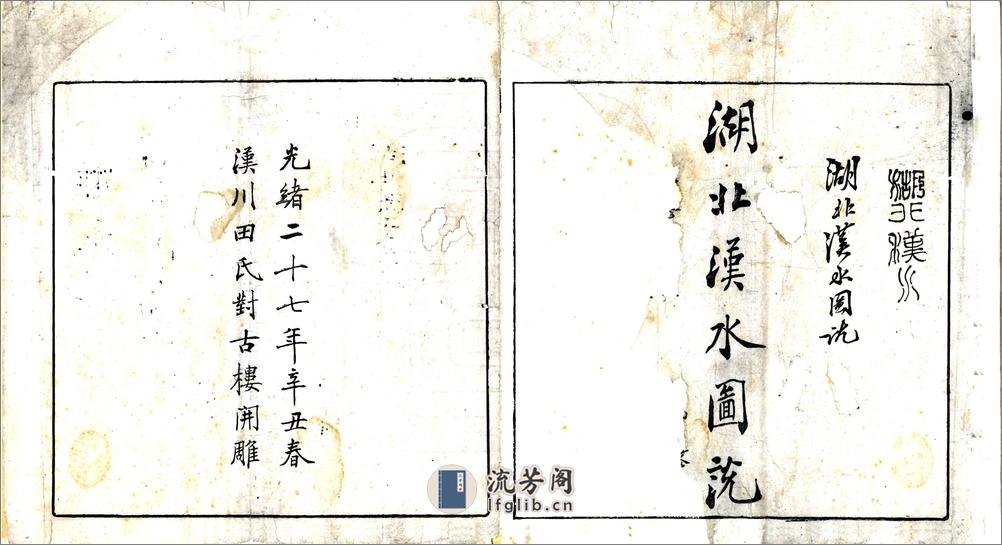 湖北漢水
湖北漢水圖説
湖北漢水圖説
光緒二十七年辛丑春
漢川田氏對古樓開雕
流芳阁
lfglib.cn